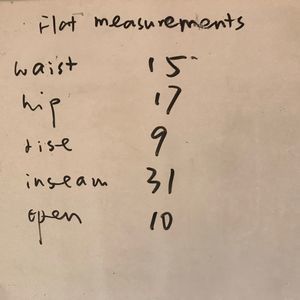 Flat measurements
waist 15
hip 17
rise 9
inseam 31
open 10